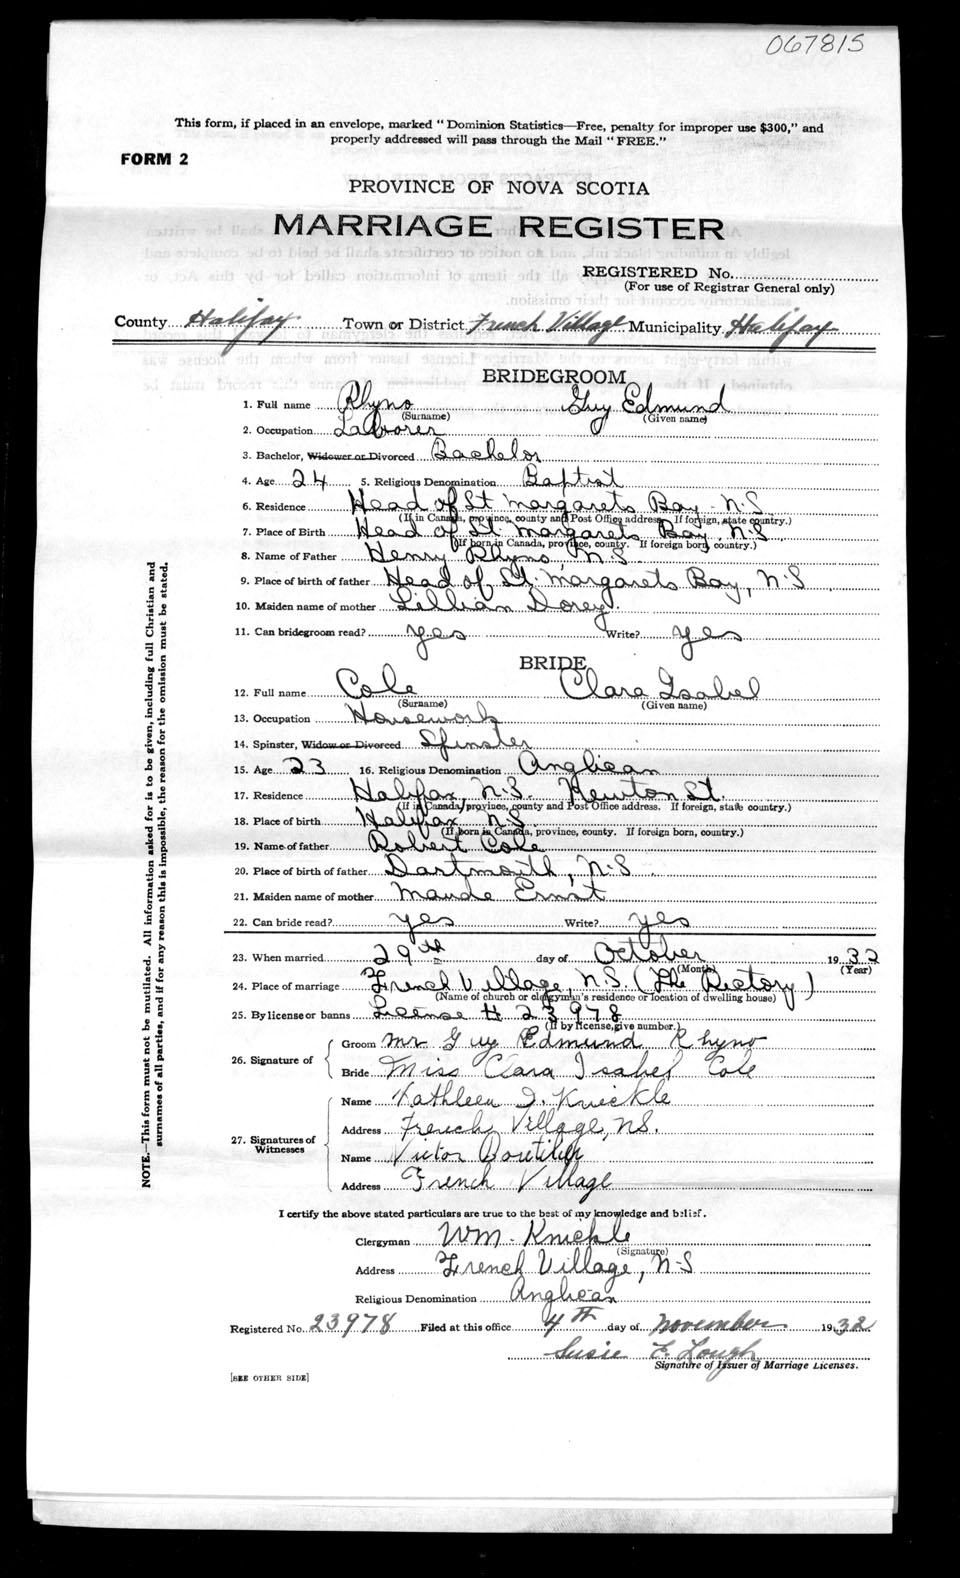 067815
This form, if placed in an envelope, marked "Dominion Statistics—Free, penalty for improper use $300," and
properly addressed will pass through the Mail "FREE."
FORM 2
PROVINCE OF NOVA SCOTIA
MARRIAGE REGISTER
REGISTERED No.
(For use of Registrar General only)
County Halifax Town or District French Village Municipality Halifax
BRIDEGROOM
1. Full name Rhyno Guy Edmund
(Surname) (Given name)
2. Occupation Laborer
3. Bachelor, Widower or Divorced Bachelor
4. Age 24 5. Religious Denomination Baptist
6. Residence Head of St Margarets Bay N-S
(If in Canada, province, county and Post Office address. If foreign, state country.)
7. Place of Birth Head of St Margarets Bay, N-S
(If born in Canada, province, county. If foreign born, country.)
8. Name of Father Henry Rhyno, N-S.
9. Place of birth of father Head of St. Margarets Bay, N-S
10. Maiden name of mother Lillian Dorey.
11. Can bridegroom read? yes Write? yes
BRIDE
12. Full name Cole Clara Isabel
(Surname) (Given name)
13. Occupation Housework
14. Spinster, Widow or Divorced Spinster
15. Age 23 16. Religious Denomination Anglican
17. Residence Halifax N-S. St.
(If in Canada, province, county and Post Office address. If foreign, state country.)
18. Place of birth Halifax N-S
(If born in Canada, province, county. If foreign born, country.)
19. Name of father Robert Cole
20. Place of birth of father Dartmouth, N-S.
21. Maiden name of mother Maude Ernst
22. Can bride read? yes Write? yes
23. When married 29th day of October 1932
(Month) (Year)
24. Place of marriage French Village, N.S. (The Rectory)
(Name of church or clergyman's residence or location of dwelling house)
25. By license or banns License # 23978
(If by license, give number.)
26. Signature of
Groom Mr Guy Edmund Rhyno
Bride Miss Clara Isabel Cole
27. Signatures of Witnesses
Name Kathleen I. Knickle
Address French Village, NS.
Name Victor Boutilier
Address French Village
I certify the above stated particulars are true to the best of my knowledge and belief.
Clergyman Wm. Knickle
(Signature)
Address French Village, N-S
Religious Denomination Anglican
Registered No. 23978 Filed at this office 4th day of November 1932
Susie E. Lough
Signature of Issuer of Marriage Licenses.
[SEE OTHER SIDE]
NOTE.—This form must not be mutilated. All information asked for is to be given, including full Christian and
surnames of all parties, and if for any reason this is impossible, the reason for the omission must be stated.